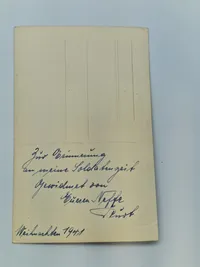 Zur Erinnerung
an meine Soldatenzeit
Gewidmet von
Eurem Neffe
Kurt
Weihnachten 1941